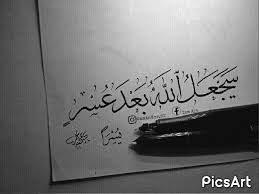 سَيَجْعَلُ اللَّهُ بَعْدَ عُسْرٍ
يُسْرًا
PicsArt